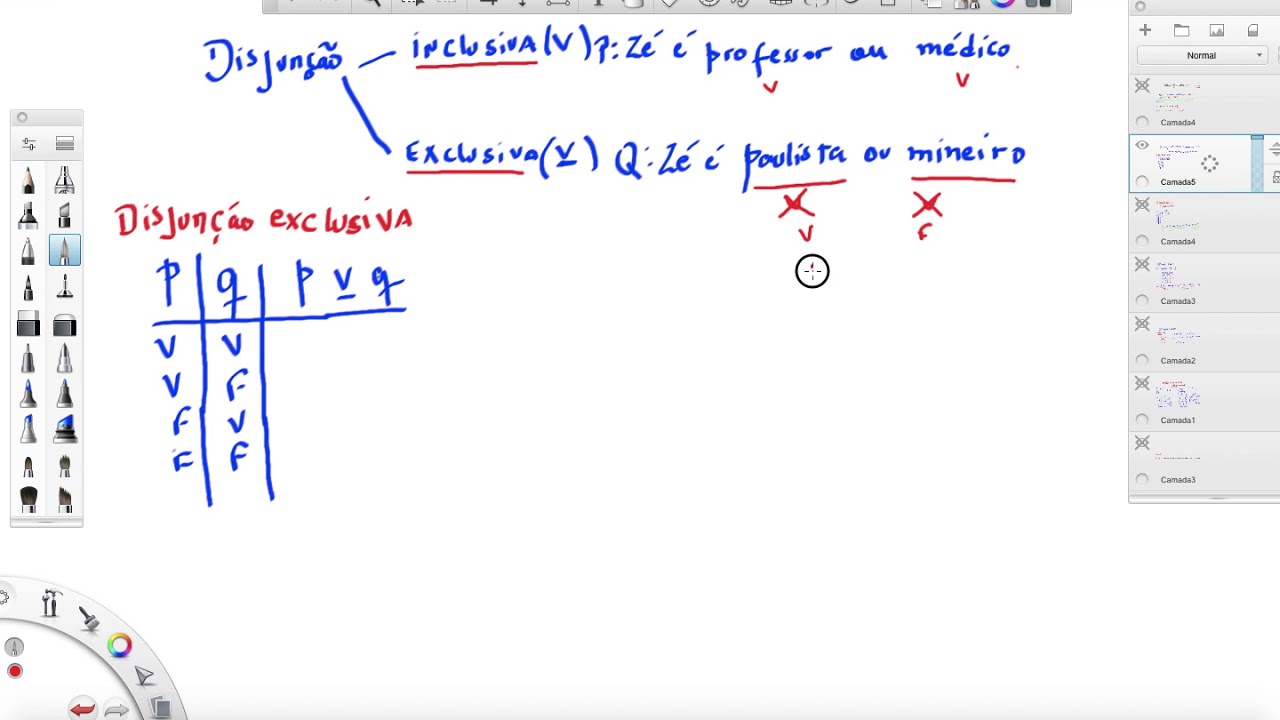 Disjunção inclusiva (V) P: Zé é professor ou médico.
V V
Exclusiva (V) Q: Zé é paulista ou mineiro
V F
Disjunção exclusiva
p q p v q
V V
V F
F V
F F
Normal
Camada4
Camada5
Camada4
Camada3
Camada2
Camada1
Camada3